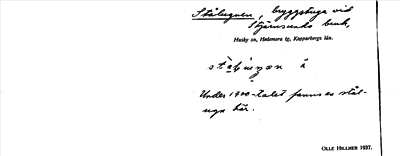 Stålugnen, byggstuga vid
Stjärnsunds bruk,
Husby sn, Hedemora tg, Kopparbergs län.
Under 1900-talet fanns en stål-
ugn här.
OLLE HILLNER 1937.